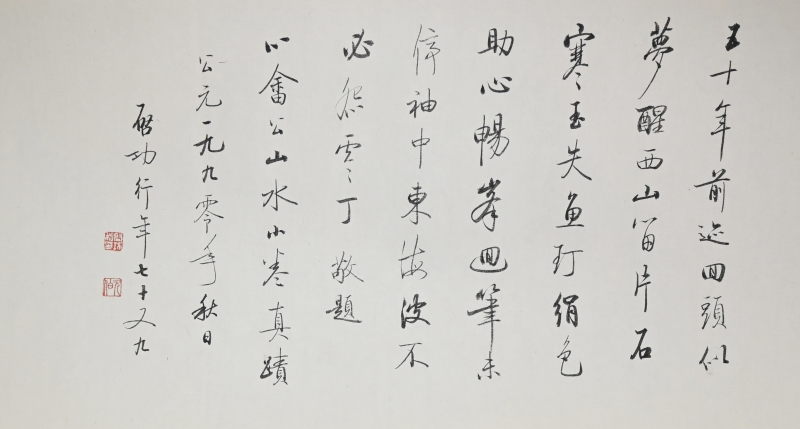 五十年前迹回頭似
夢醒西山留片石
寒玉失魚玎絹色
助心暢峯迴筆未
停袖中東海波不
必怨零丁 敬題
心畬公山水小卷真蹟
公元一九九零年秋日
啟功行年七十又九